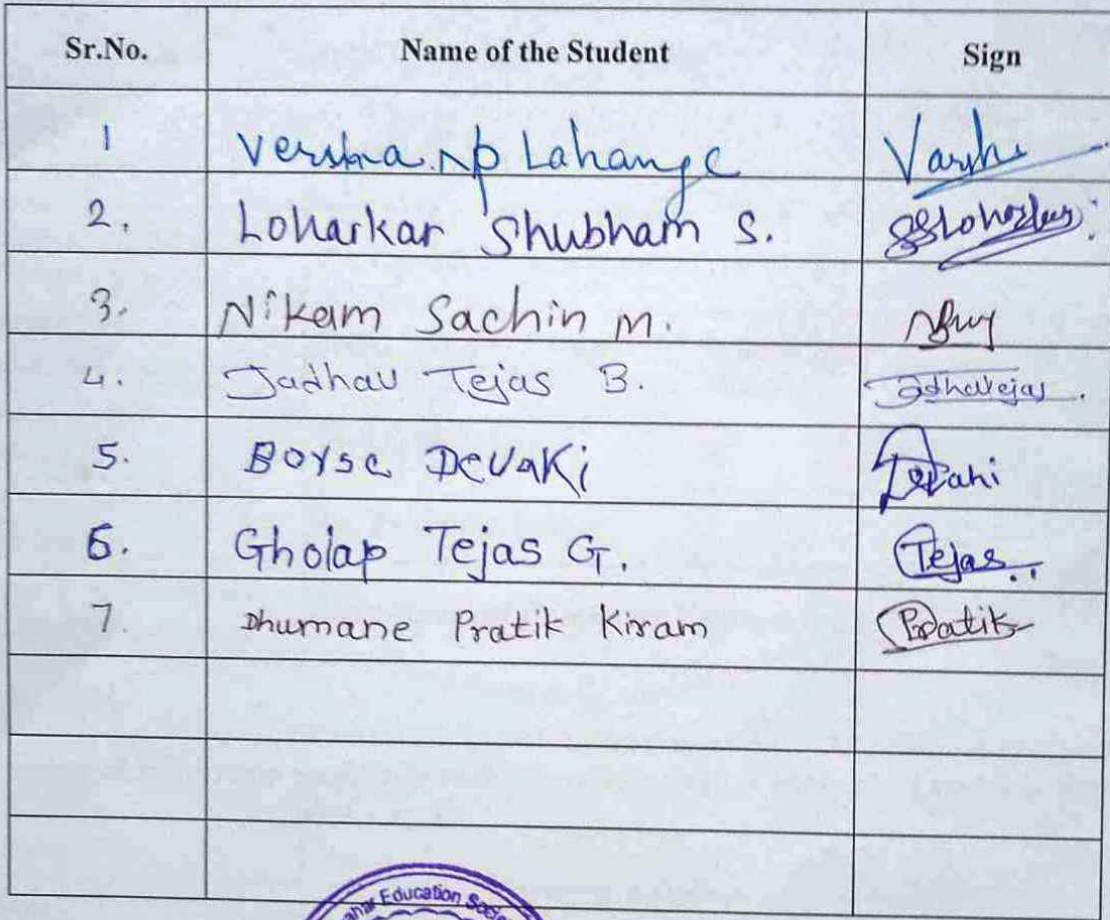 Sr.No. Name of the Student Sign
1 Versha Np Lahange Varsh
2. Loharkar Shubham S. SSLoharkar
3. Nikam Sachin M.
4. Jadhav Tejas B. Jadhavtejas.
5. Borse Devaki Devaki
6. Gholap Tejas G. Tejas..
7. Dhumane Pratik Kiram Pratik
Education